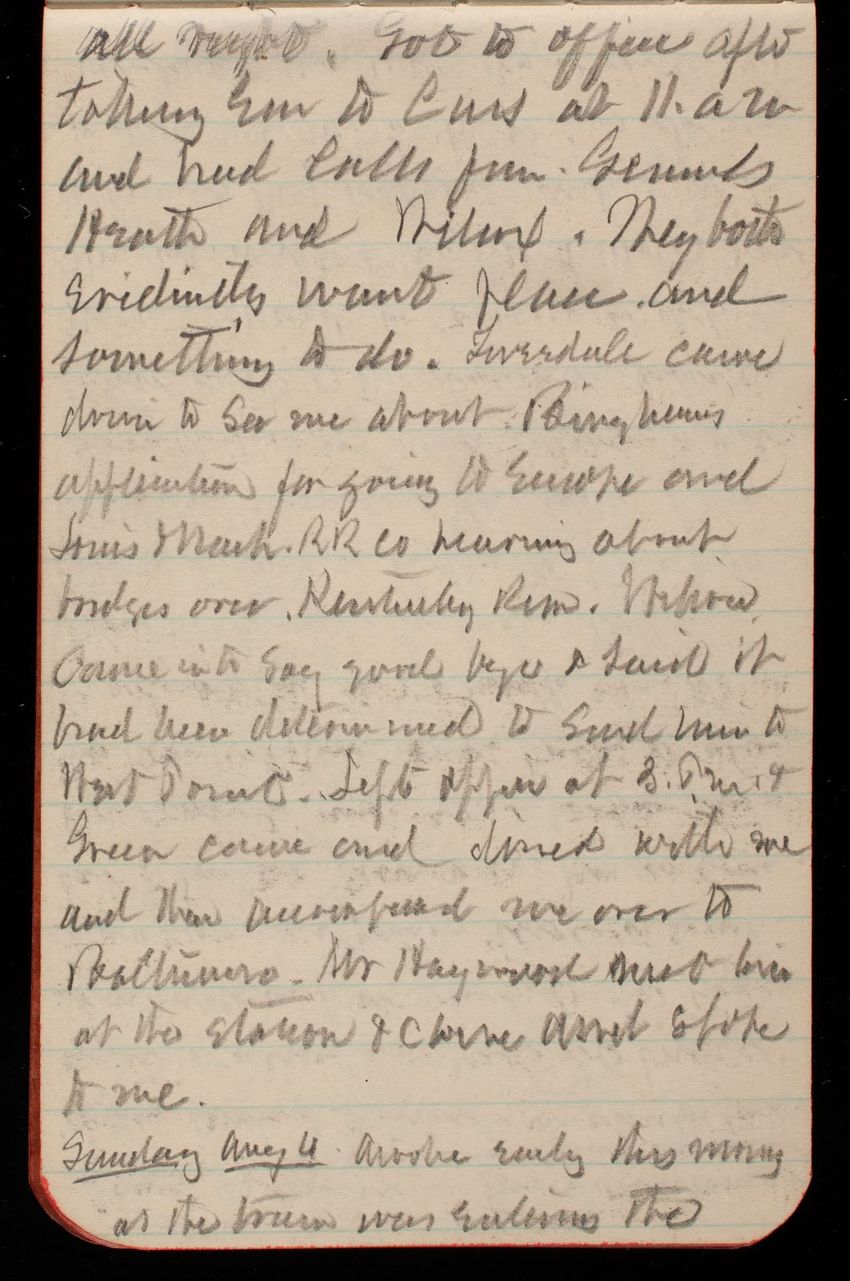 all night. Got to office after
taking Em to Cars at 11. a m
and had calls from Generals
Heath and Wilcox. They both
evidently want place and
something to do. Loverdale came
down to see me about Binghams
application for going to Europe and
Louis & Nash. RR co hearing about
bridges over Kentucky River. Wilson
Came in to say good bye & said it
had been determined to send him to
West Point. Left office at 3. P.M. &
Green came and dined with me
and then accompanied me over to
Baltimore. Mr Haywood met him
at the station & came and spoke
to me.
Sunday Aug 4 Awoke early this morning
as the train was entering the